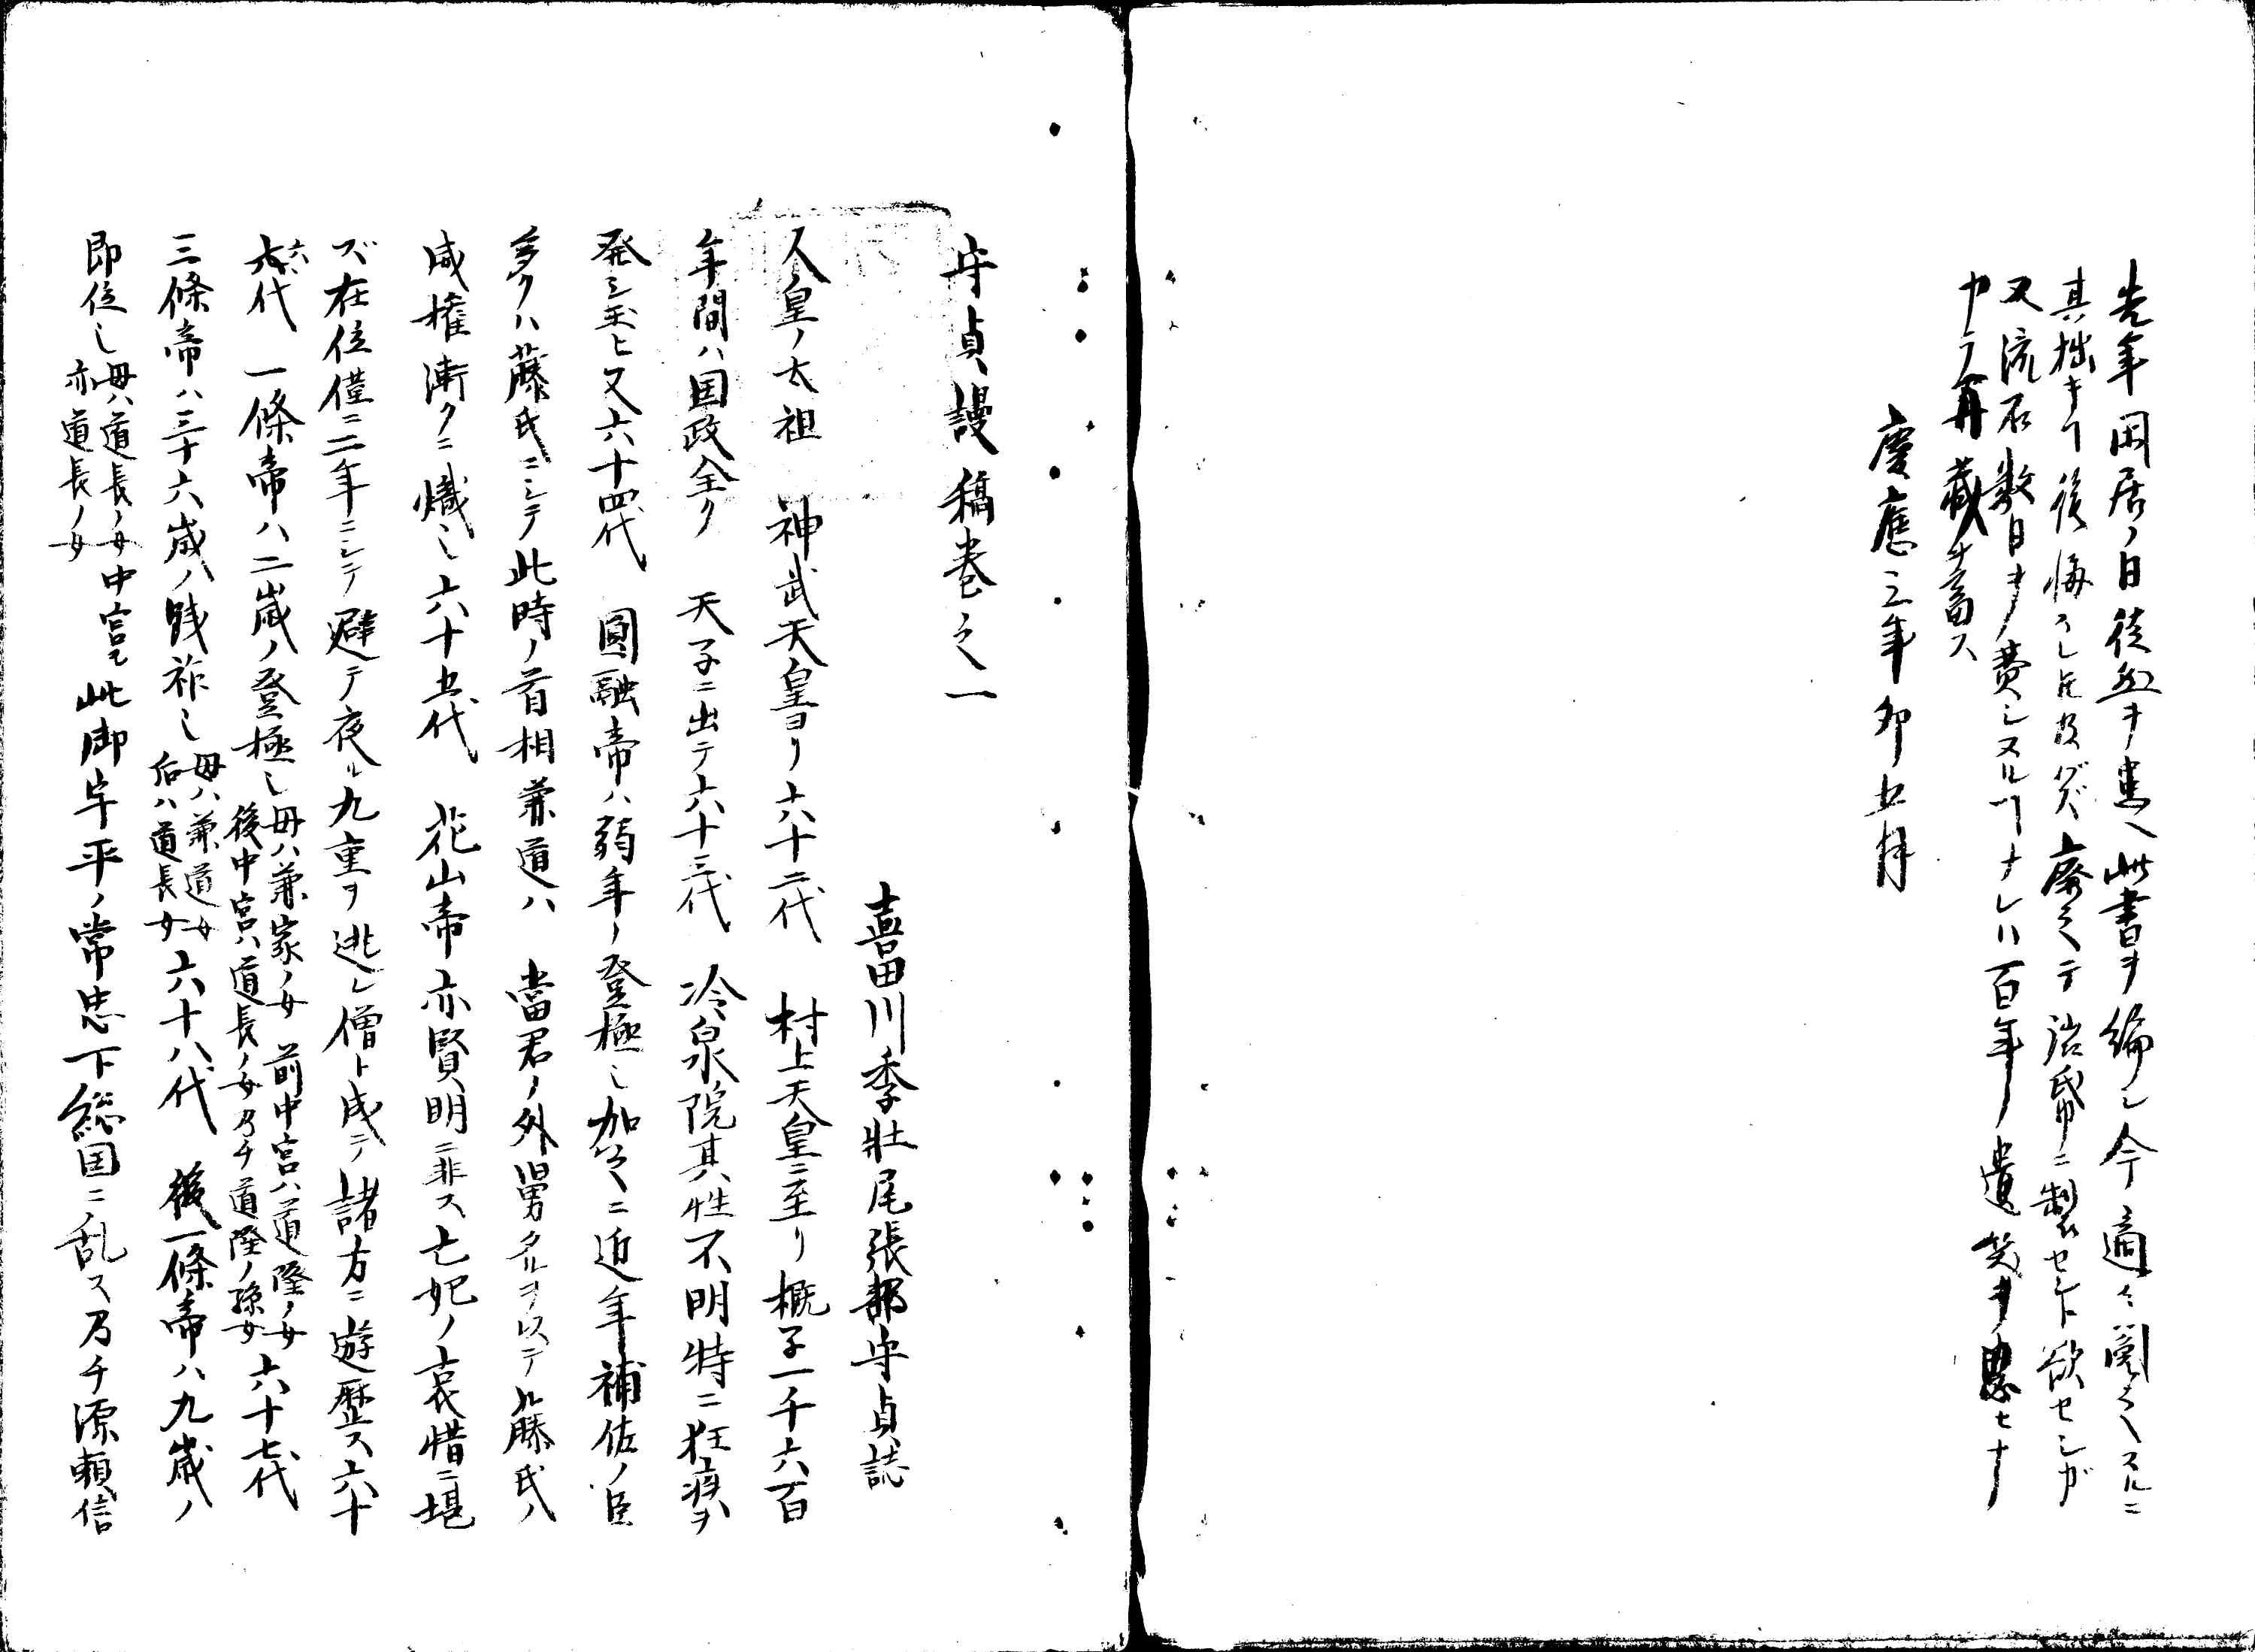 先年閑居ノ日徒然ヲ患ヘ此書ヲ編シ今適々閲之スルニ
其拙キヿ後悔スレ𪜈及バズ廃之テ浴帋ニ製セント欲セシガ
又流石数日ヲ費シヌルヿナレハ百年ノ遺笑ヲ思ヒナ
カラ再蔵ヲ畜ス
慶應三年卯五月
守貞謾稿巻之一
喜田川季壮尾張部守貞誌
人皇ノ太祖 神武天皇ヨリ六十二代 村上天皇ニ至リ概子一千六百
年間ハ国政全ク 天子ニ出テ六十三代 冷泉院其性不明特ニ狂疾ヲ
発シ玉ヒ又六十四代 圓融帝ハ弱年ノ登極シ加之ニ近年補佐ノ臣
多クハ藤氏ニシテ此時ノ首相兼道ハ 當君ノ外舅タルヲ以テ藤氏ハ
威権漸クニ熾シ六十五代 花山帝亦賢明ニ非ス亡妃ノ哀惜ニ堪
ズ在位僅ニ二年ニシテ避テ夜ル九重ヲ逃レ僧ト成テ諸方ニ遊歴ス六十
六代 一條帝ハ二歳ノ登極シ母ハ兼家ノ女 前中宮ハ道隆ノ女 後中宮ハ道長ノ女乃チ道隆ノ孫女 六十七代
三條帝ハ三十六歳ノ践祚シ母ハ兼道女 后ハ道長女 六十八代 後一條帝ハ九歳ノ
即位シ母ハ道長ノ女中宮モ亦道長ノ女 此御宇平ノ常忠下総国ニ乱ス乃チ源頼信